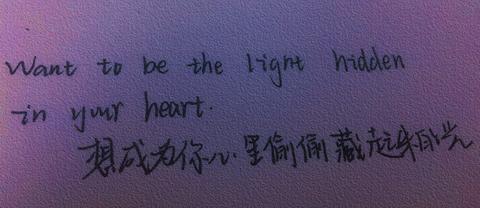 Want to be the light hidden
in your heart.
想成为你心里偷偷藏起来的光